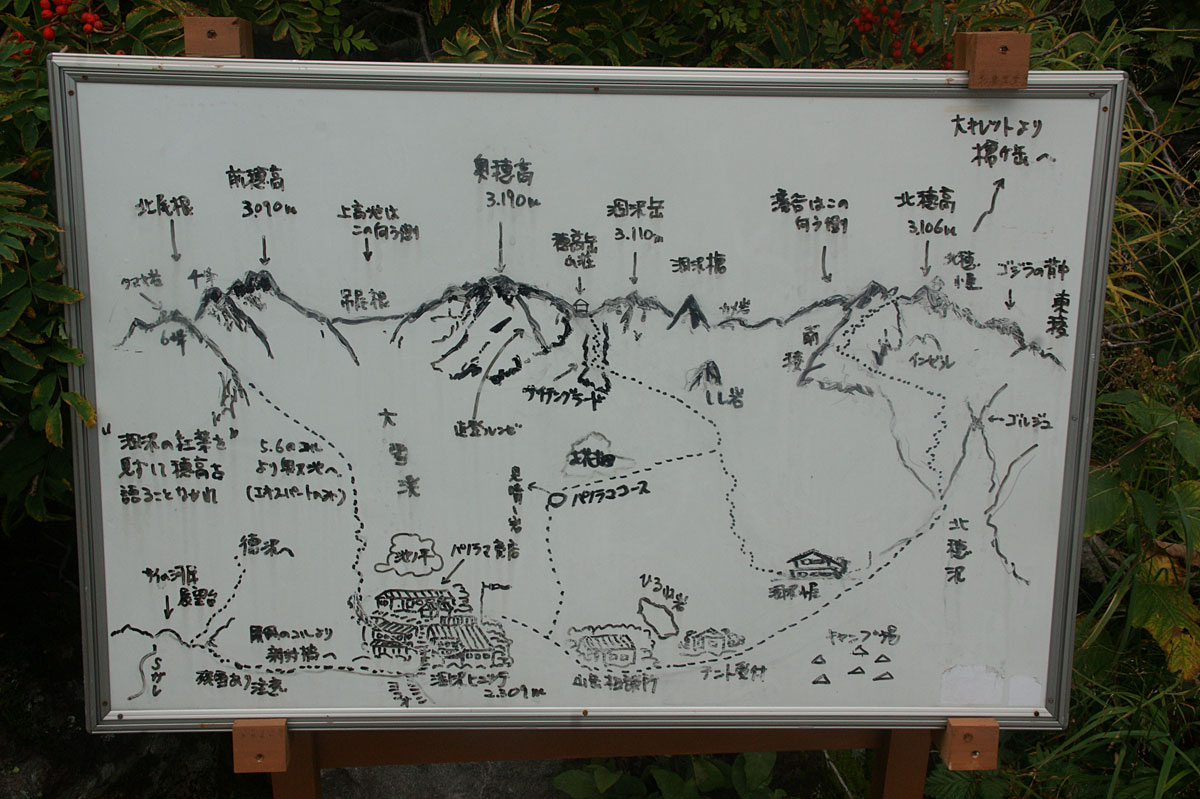 大キレットより
槍ヶ岳へ
奥穂高
3.190m
前穂高
3.090m
北尾根
上高地は
この向う側
穂高岳
山荘
涸沢岳
3.110m
涸沢槍
滝谷はこの
向う側
北穂高
3,106m
北穂
小屋
ゴジラの背中
東稜
6峰
吊尾根
南
稜
インゼル
ザイテングラード
しし岩
ゴルジュ
大
雪
渓
直登ルンゼ
お花畑
"涸沢の紅葉を"
見ずして穂高を
語ることなかれ
5.6のコル
より奥又白池へ
(エキスパートのみ)
見晴し岩
パノラマコース
北
穂
沢
徳沢へ
池ノ平
パノラマ売店
展望台
涸沢小屋
屏風のコルより
新村橋へ
残雪あり注意
Sガレ
涸沢ヒュッテ
2.309m
山岳相談所
テント受付
キャンプ場